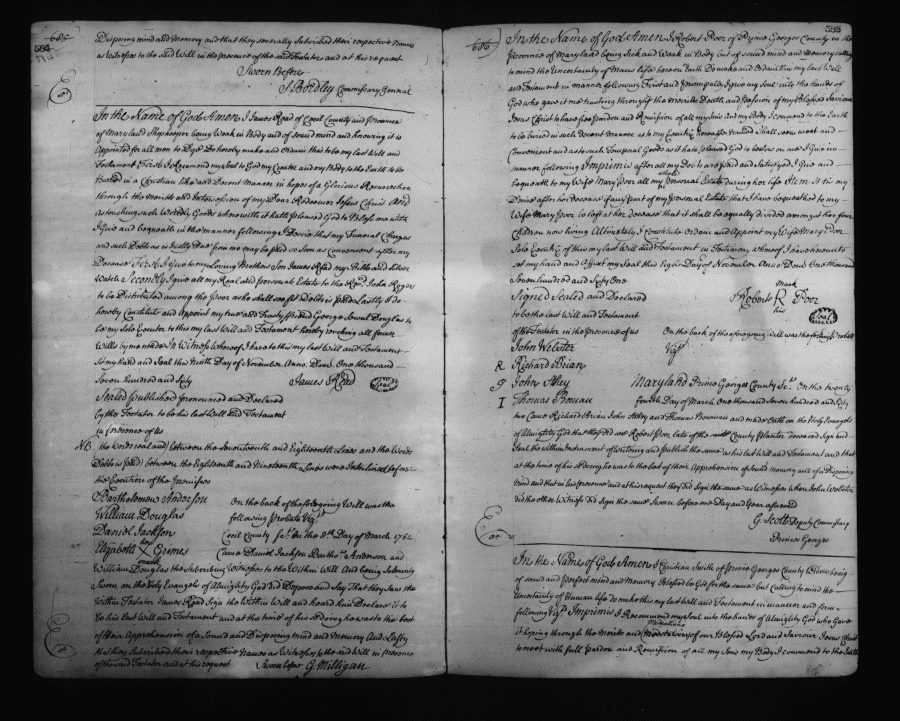 685
584
Disposing mind and Memory and that they severally Subscribed their respective Names
as Witnesses to the said Will in the presence of the said Testator and at his request
Sworn Before
J Bordley Commissary General
In the Name of God Amen I James Read of Cecil County and Province
of Maryland Shopkeeper being Weak in Body and of Sound mind and knowing it is
Appointed for all men to Dye Do hereby make and Ordain this to be my last Will and
Testament First I Recomend my Soul to God my Creator and my Body to the Earth to be
Buried in a Christian like and Decent Manner in hopes of a Glorious Resurrection
through the merits and Intercession of my Dear Redeemer Jesus Christ And
as touching such Worldly Goods wherewith it hath pleased God to Bless me with
I Give and bequeath in the manner following I Desire that my Funeral Charges
and such Debts as is Justly Due from me may be paid so Soon as Convenient after my
Decease First I Give to my Loving Brothers Son James Read my and Silver
Watch Secondly I give all my Real and personal Estate to the Revd. John Roger
to be Distributed among the Poor as he shall see fit Debts is paid Lastly I do
hereby Constitute and Appoint my true and Trusty friend George Douglas to
be my Sole Executor to this my last Will and Testament hereby revoking all former
Wills by me made In Witness whereof I have to this my last Will and Testament
Set my hand and Seal the Ninth Day of November Anno. Dom. One thousand
Seven hundred and Sixty
James Read
Seal
Sealed published pronounced and Declared
by the Testator to be his last Will and Testament
in presence of us
NB the words real and) between the Seventeenth and Eighteenth Lines and the Words
Debts is paid) between the Eighteenth and Nineteenth Lines were Interlined before
the Execution of the Premises
Bartholomew Anderson
William Douglas
Daniel Jackson
her
Elizabeth X Grimes
mark
On the back of the foregoing Will was the
following probate Vizt.
Cecil County Sct. On the 8th Day of March 1762
Came Daniel Jackson Barthw. Anderson and
William Douglas the Subscribing Witnesses to the Within Will And being Solemnly
Sworn on the Holy Evangels of Almighty God Did Depose and Say That they Saw the
Within Testator James Read Sign the Within Will and heard him Declare it to
be his last Will and Testament and at the time of his so doing he was to the best
of their Apprehension of a Sound and Disposing mind and memory And Lastly
that they Subscribed their respective Names as Witnesses to the said Will in presence
of the said Testator and at his request
Sworn before G. Milligan
686
585
In the Name of God Amen I Robert Poor of Prince Georges County in the
Province of Maryland being Sick and Weak in Body but of Sound mind and Memory calling
to mind the Uncertainty of Mans life here on Earth Do make and Ordain this my last Will
and Testament in manner following First and Principally I give my Soul into the hands of
God who gave it me trusting through the merits Death and Passion of my Blessed Saviour
Jesus Christ to have free Pardon and Remission of all my Sins And my Body I commend to the Earth
to be buried in such Decent Manner as to my Executrix hereafter named Shall seem meet and
Convenient and as to such Temporal Goods as it hath pleased God to bestow on me I Give in
manner following Imprimis after all my Debts are paid and satisfyed I Give and
whole
bequeath to my Wife Mary Poor all my personal Estate during her life Item It is my
Desire after her decease if any part of my personal Estate that I have bequeathed to my
Wife Mary Poor be left at her decease that it shall be equally divided amongst her four
Children now living Ultimately I constitute Ordain and Appoint my Wife Mary Poor
Sole Executrix of this my last Will and Testament in Testimony whereof I have hereunto
set my hand and affixt my Seal this Eight Day of November Anno Dom One thousand
Seven hundred and Sixty One
mark
Signed Sealed and Declared
Roberts R Poor
his
Seal
to be the last Will and Testament
of the Testator in the presence of us
John Webster
R Richard Brian
g John Athey
I Thomas Bowman
On the back of the aforegoing Will was the following Probate
Vizt.
Maryland Prince Georges County Sct. On the twenty
fourth Day of March One thousand Seven hundred and Sixty
two Came Richard Brian John Athey and Thomas Bowman and made Oath on the Holy Evangels
of Almighty God that they Did see Robert Poor late of the County Planter deceased Sign and
Seal the within Instrument of Writing and publish the same as his last Will and Testament and that
at the time of his so doing he was to the best of their Apprehension of Sound memory and of a Disposing
Mind and that in his presence and at his request they did Sign the same as Witnesses when John Webster
did the other Witness Did Sign the same Sworn before me Day and Year aforesaid
G. Scott Deputy Commissary
Prince Georges
In the Name of God Amen I Christian Smith of Prince Georges County Widow being
of sound and perfect mind and Memory Blessed be God for the same but calling to mind the
Uncertainty of Human life do make this my last Will and Testament in manner and form
following Vizt. Imprimis I Recommend my Soul into the hands of Almighty God who Gave
Mediation
it hoping through the merits and of our Blessed Lord and Saviour Jesus Christ
to meet with full pardon and Remission of all my Sins my Body I commend to the Earth